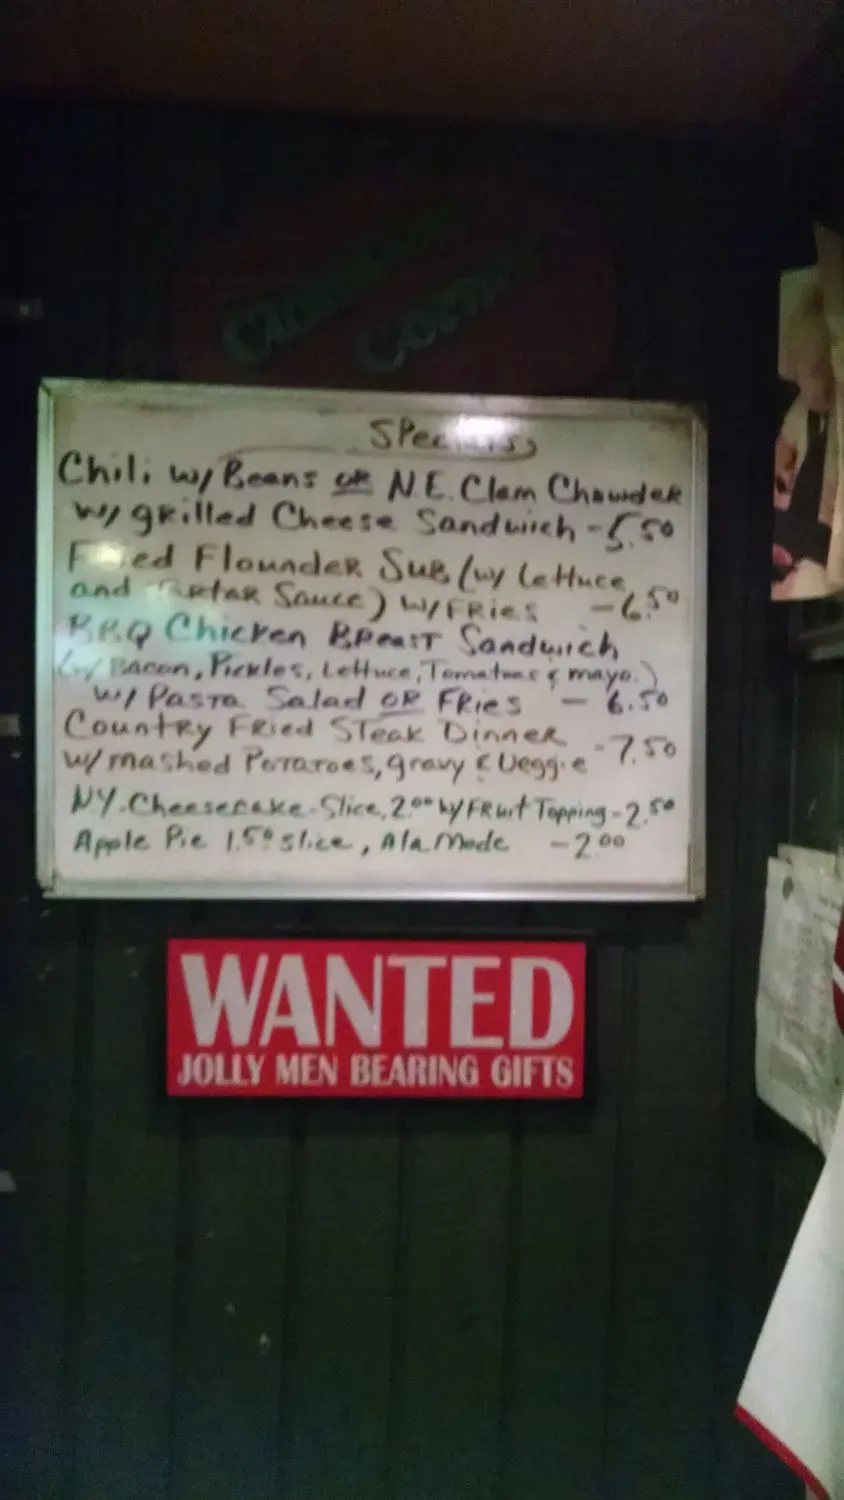 Specials
Chili w/ Beans or N.E. Clam Chowder
w/ grilled Cheese Sandwich - 5.50
Fried Flounder Sub (w/ Lettuce
and Tartar Sauce) w/ Fries - 6.50
BBQ Chicken Breast Sandwich
(w/ Bacon, Pickles, Lettuce, Tomatoes & mayo.)
w/ Pasta Salad or Fries - 6.50
Country Fried Steak Dinner
w/ mashed Potatoes, gravy & Veggie - 7.50
N.Y. Cheesecake - Slice, 2.00 w/ Fruit Topping - 2.50
Apple Pie 1.50 slice, Ala Mode - 2.00
WANTED
JOLLY MEN BEARING GIFTS